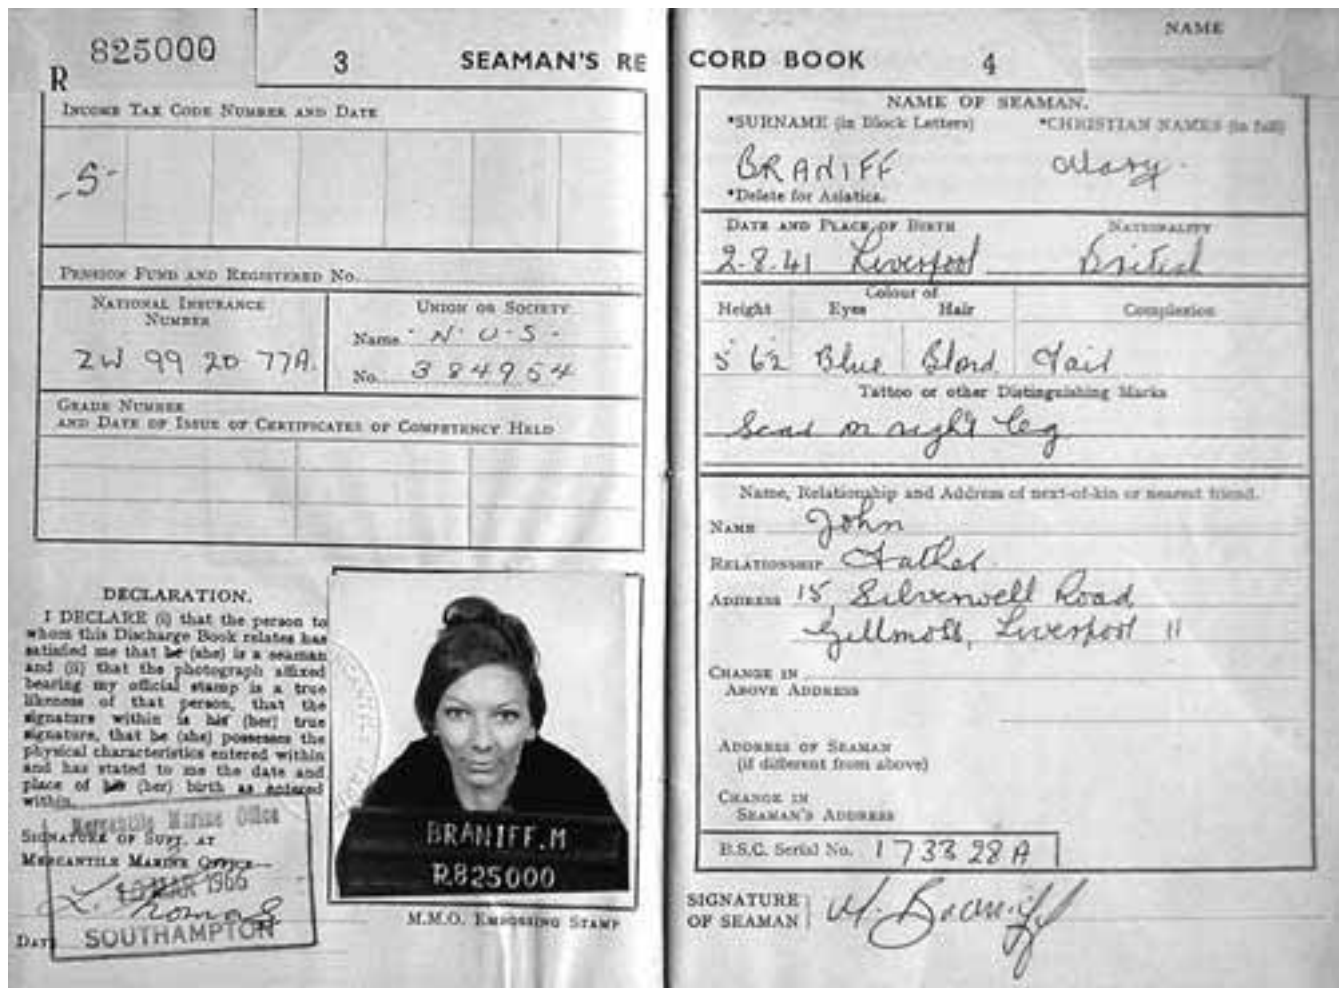 R 825000
3
SEAMAN'S RE
INCOME TAX CODE NUMBER AND DATE
-S-
PENSION FUND AND REGISTERED NO.
NATIONAL INSURANCE
NUMBER
ZW 99 20 77A.
UNION OR SOCIETY
Name N.U.S.
No. 384954
GRADE NUMBER
AND DATE OF ISSUE OF CERTIFICATES OF COMPETENCY HELD
DECLARATION.
I DECLARE (i) that the person to
whom this Discharge Book relates has
satisfied me that he (she) is a seaman
and (ii) that the photograph affixed
bearing my official stamp is a true
likeness of that person, that the
signature within is his (her) true
signature, that he (she) possesses the
physical characteristics entered within
and has stated to me the date and
place of his (her) birth as entered
within.
Mercantile Marine Office
SIGNATURE OF SUPT. AT
MERCANTILE MARINE OFFICE—
MAR 1966
L. Thomas
DATE
SOUTHAMPTON
BRANIFF.M
R825000
M.M.O. EMBOSSING STAMP
CORD BOOK
4
NAME
NAME OF SEAMAN.
*SURNAME (in Block Letters) *CHRISTIAN NAMES (in full)
BRANIFF Mary.
*Delete for Asiatics.
DATE AND PLACE OF BIRTH NATIONALITY
2.8.41 Liverpool British
Colour of
Height Eyes Hair Complexion
5' 6½ Blue Blond Fair
Tattoo or other Distinguishing Marks
Scar on right leg
Name, Relationship and Address of next-of-kin or nearest friend.
NAME John
RELATIONSHIP Father
ADDRESS 15, Silverwell Road
Gillmoss, Liverpool 11
CHANGE IN
ABOVE ADDRESS
ADDRESS OF SEAMAN
(if different from above)
CHANGE IN
SEAMAN'S ADDRESS
B.S.C. Serial No. 173328A
SIGNATURE
OF SEAMAN
M. Braniff